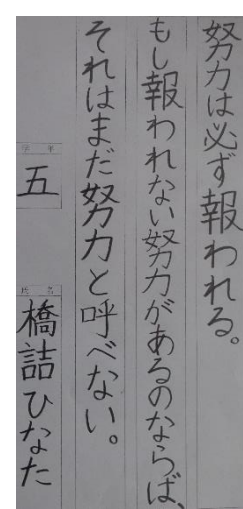 努力は必ず報われる。
もし報われない努力があるのならば、
それはまだ努力と呼べない。
学年
五
氏名
橋詰ひなた